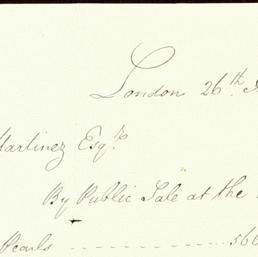 London 26th
Martinez Esqr.
By Public Sale at the
Pearls ................ 560